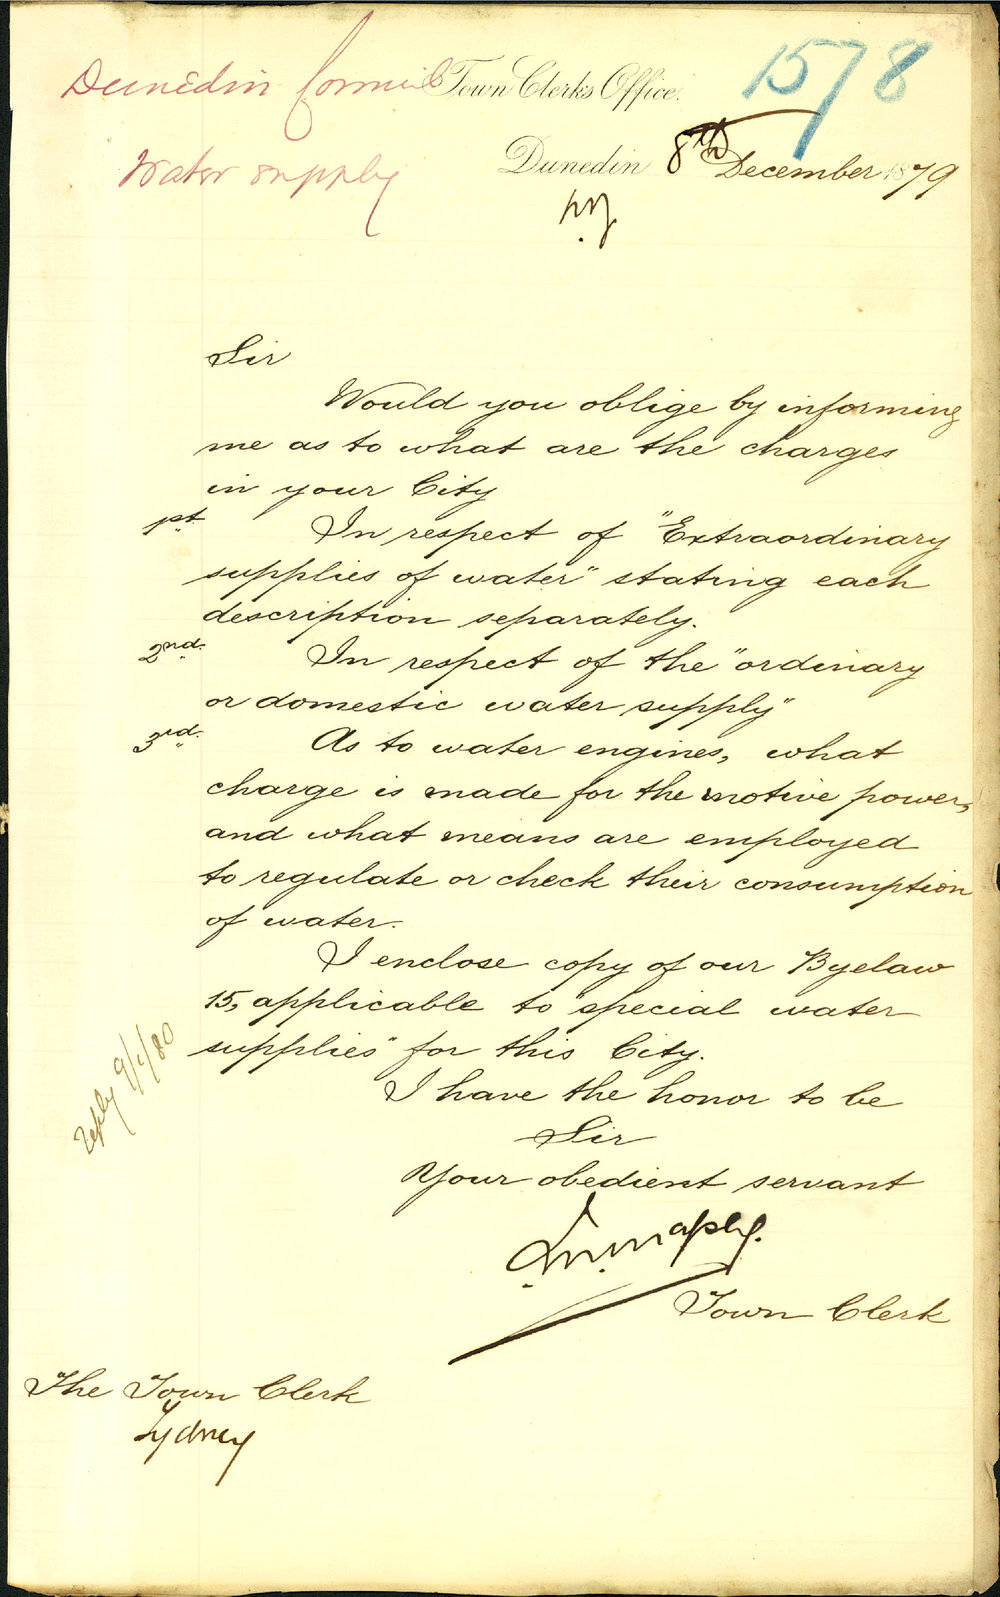 Dunedin
Water supply
Town Clerk's Office.
1578
Dunedin 8th December 1879
Sir
Would you oblige by informing
me as to what are the charges
in your City
1st In respect of "Extraordinary
supplies of water" stating each
description separately.
2nd. In respect of the "ordinary
or domestic water supply"
3rd. As to water engines, what
charge is made for the motive power,
and what means are employed
to regulate or check their consumption
of water.
I enclose copy of our Byelaw
15, applicable to "special water
supplies" for this City.
I have the honor to be
Sir
Your obedient servant
Town Clerk
The Town Clerk
Sydney
reply 9/1/80